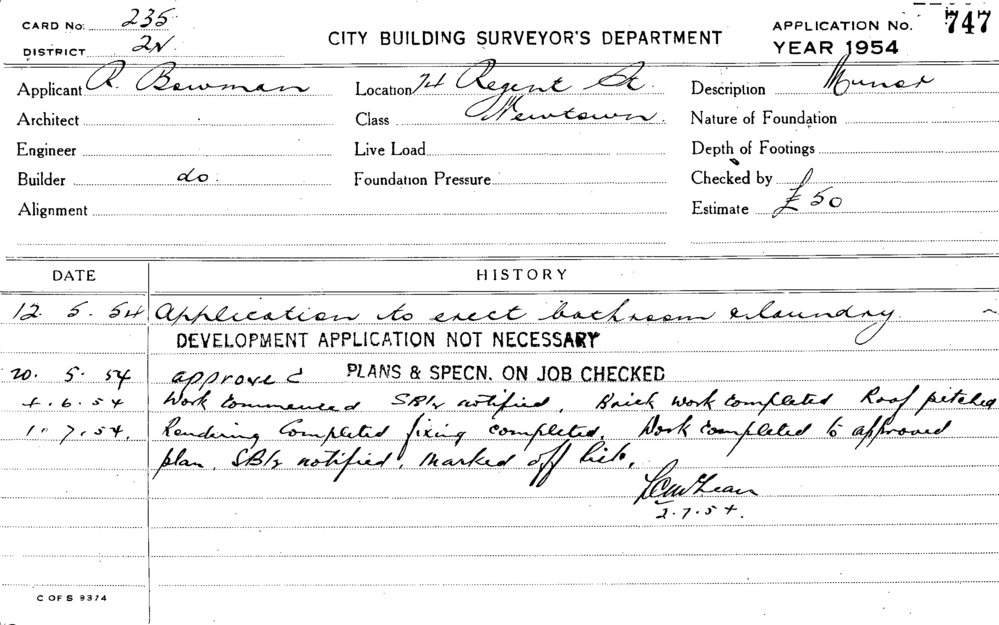 CARD No. 235
DISTRICT 2N
CITY BUILDING SURVEYOR'S DEPARTMENT
APPLICATION No. 747
YEAR 1954
Applicant R. Bowman Location 74 Regent St. Description Minor
Architect Class Newtown. Nature of Foundation
Engineer Live Load Depth of Footings
Builder do. Foundation Pressure Checked by
Alignment Estimate £50
DATE HISTORY
12. 5. 54 Application to erect bathroom & laundry
DEVELOPMENT APPLICATION NOT NECESSARY
20. 5. 54 approved PLANS & SPECN. ON JOB CHECKED
4. 6. 54 Work Commenced notified. Brick work completed Roof pitched
1. 7. 54. Rendering Completed fixing completed. Work completed to approved
plan. notified. marked off list.
McLean
2. 7. 54.
C OF S 9374